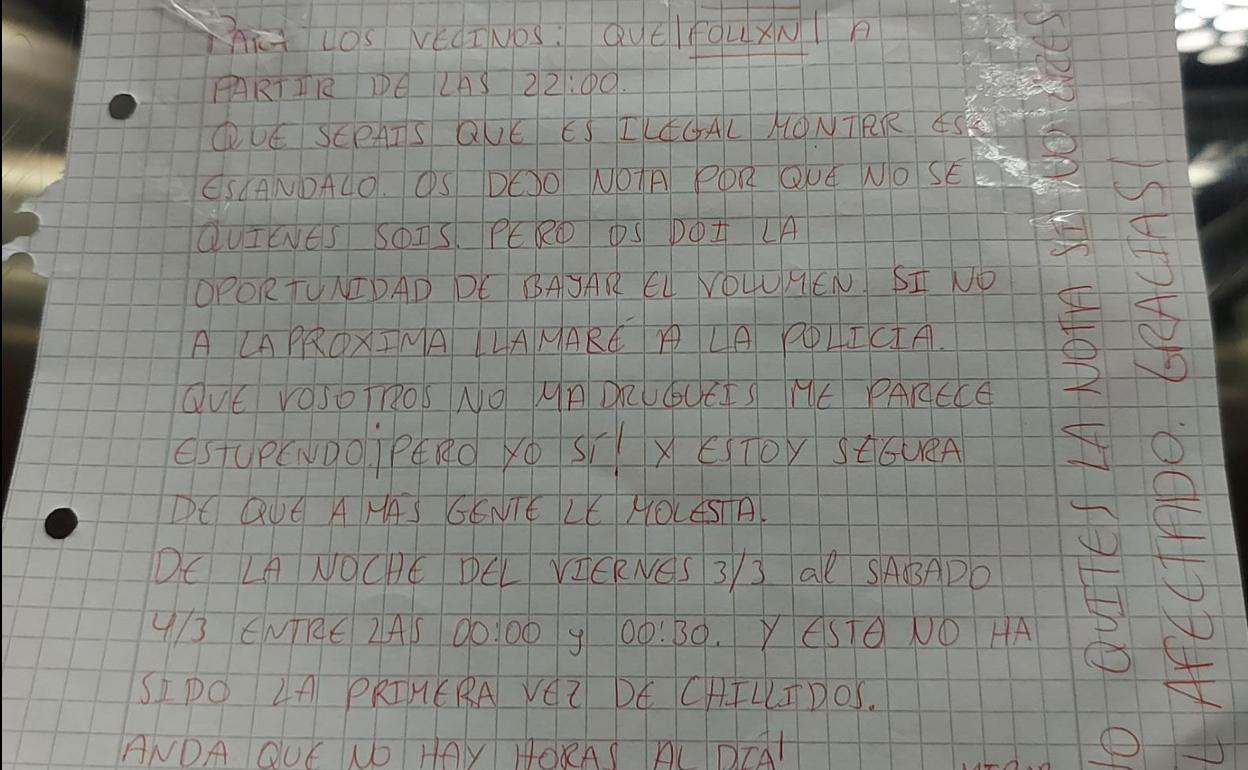 PARA LOS VECINOS: QUE |FOLLXN| A
PARTIR DE LAS 22:00.
QUE SEPAIS QUE ES ILEGAL MONTAR ESE
ESCANDALO. OS DEJO NOTA POR QUE NO SE
QUIENES SOIS. PERO OS DOI LA
OPORTUNIDAD DE BAJAR EL VOLUMEN. SI NO
A LA PROXIMA LLAMARÉ A LA POLICIA.
QUE VOSOTROS NO MADRUGUEIS ME PARECE
ESTUPENDO ¡PERO YO SÍ! Y ESTOY SEGURA
DE QUE A MÁS GENTE LE MOLESTA.
DE LA NOCHE DEL VIERNES 3/3 al SABADO
4/3 ENTRE LAS 00:00 y 00:30. Y ESTO NO HA
SIDO LA PRIMERA VEZ DE CHILLIDOS.
ANDA QUE NO HAY HORAS AL DIA!
NO QUITES LA NOTA SI NO ERES
AFECTADO. GRACIAS!